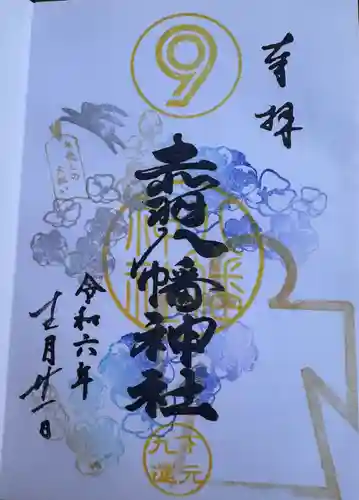 奉拝
⑨
赤羽八幡神社
令和六年
十二月廿一日
下元
九運